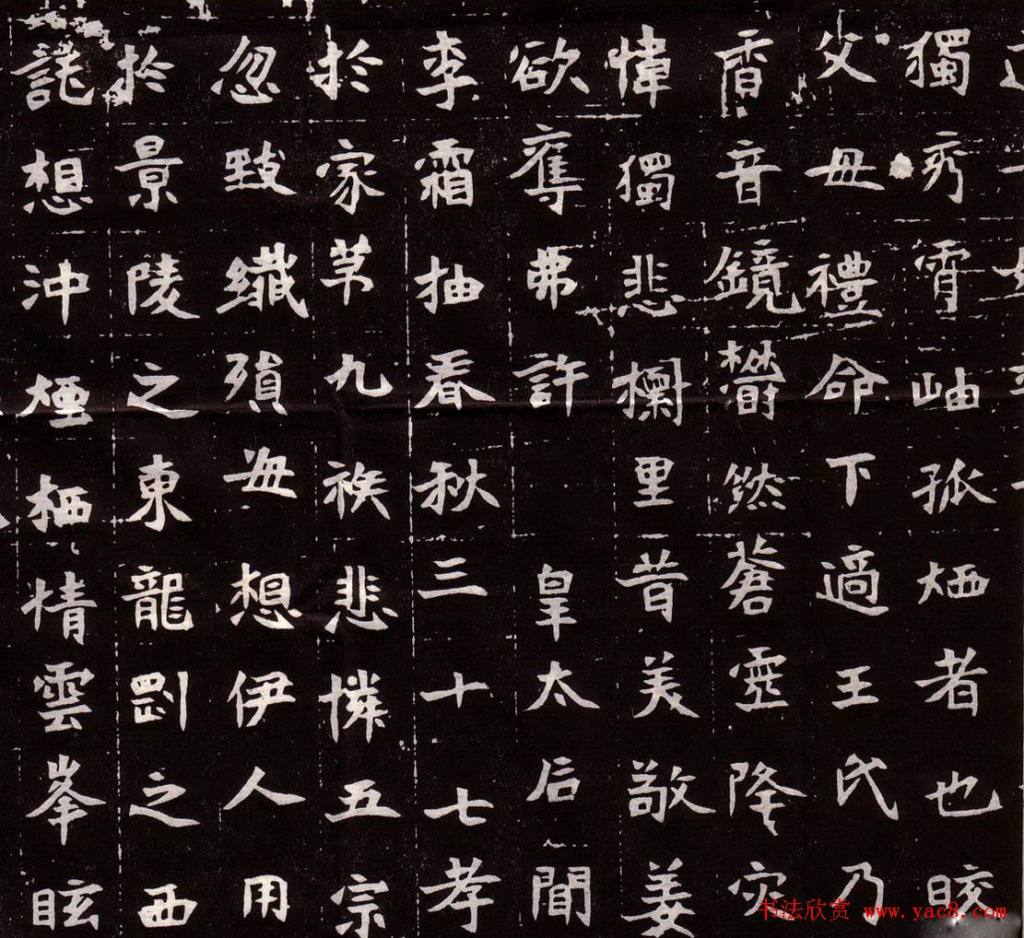 獨秀霄岫孤烟者也晈
父毋禮命下適王氏乃
香音鏡鬱然蒼靈降灾
愇獨悲欄里昔美敬姜
欲奪弗許 皇太后聞
李霜抽春秋三十七孝
於家苐九族悲憐五宗
忽致纎殞毎想伊人用
於景陵之東龍剛之西
託想沖煙栖情雲峯眩
书法欣赏 www.yac8.com